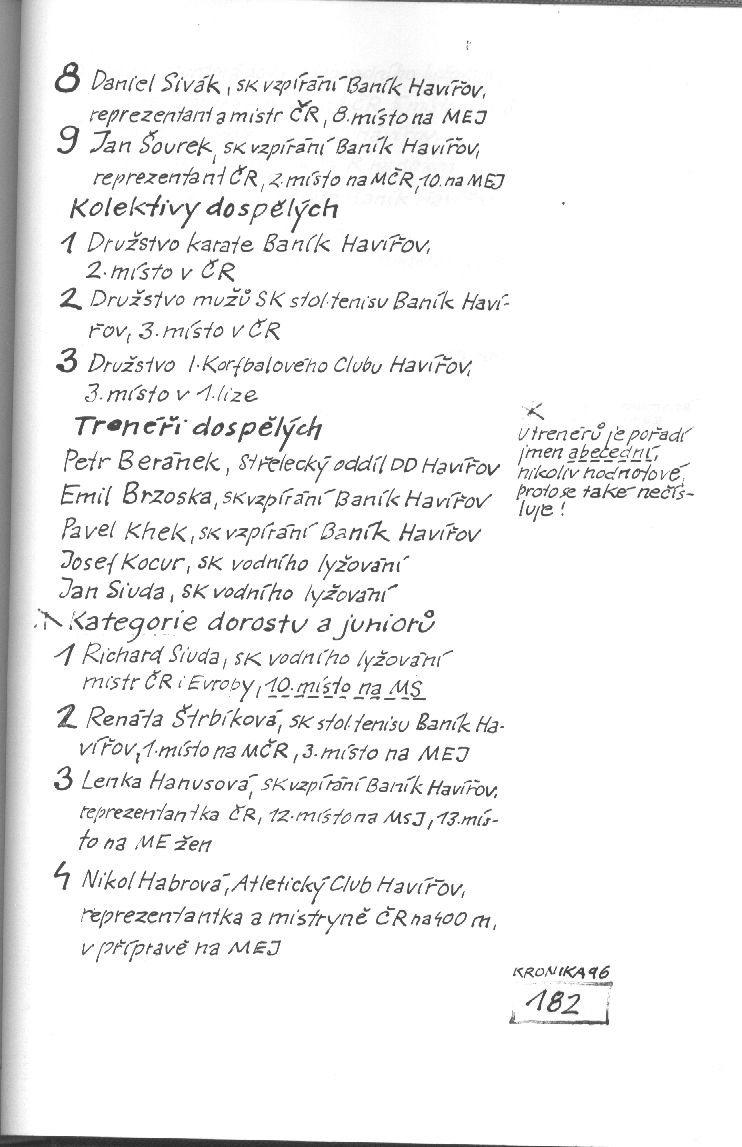 8 Daniel Sivák, SK vzpírání Baník Havířov,
reprezentant a mistr ČR, 8. místo na MEJ
9 Jan Šourek, SK vzpírání Baník Havířov,
reprezentant ČR, 2. místo na MČR, 10. na MEJ
Kolektivy dospělých
1 Družstvo karate Baník Havířov,
2. místo v ČR
2 Družstvo mužů SK stol. tenisu Baník Haví-
řov, 3. místo v ČR
3 Družstvo I. Korfbalového Clubu Havířov,
3. místo v 1. lize
Trenéři dospělých
Petr Beránek, Střelecký oddíl DD Havířov
Emil Brzoska, SK vzpírání Baník Havířov
Pavel Khek, SK vzpírání Baník Havířov
Josef Kocur, SK vodního lyžování
Jan Siuda, SK vodního lyžování
U trenérů je pořadí
jmen abecední,
nikoliv hodnotové,
proto se také nečís-
luje!
Kategorie dorostu a juniorů
1 Richard Siuda, SK vodního lyžování
mistr ČR i Evropy, 10. místo na MS
2 Renáta Štrbíková, SK stol. tenisu Baník Ha-
vířov, 1. místo na MČR, 3. místo na MEJ
3 Lenka Hanusová, SK vzpírání Baník Havířov,
reprezentantka ČR, 12. místo na MSJ, 13. mís-
to na ME žen
4 Nikol Habrová, Atletický Club Havířov,
reprezentantka a mistryně ČR na 400 m,
v přípravě na MEJ
KRONIKA 96
182